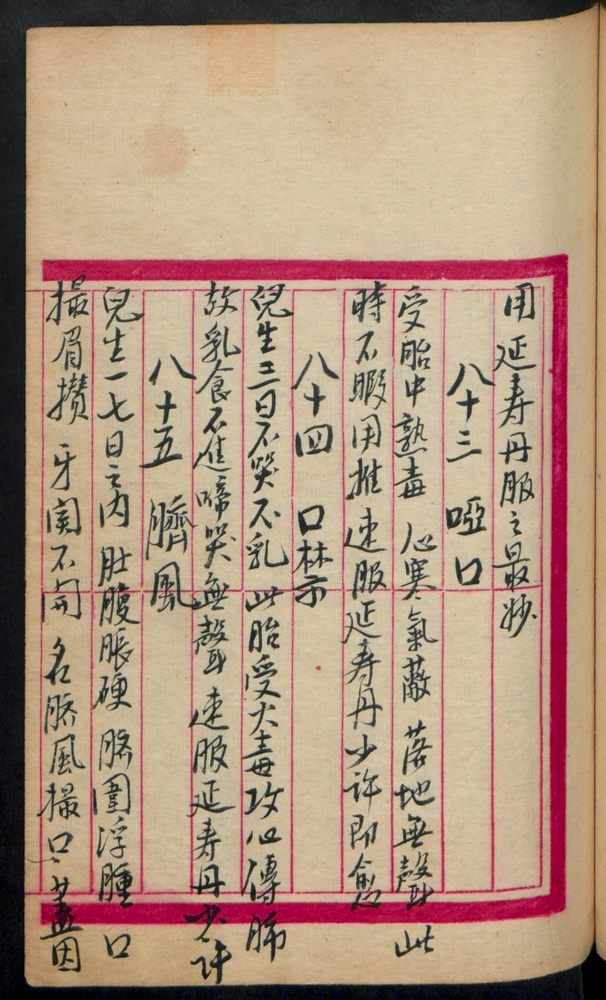 用延寿丹服之最妙
八十三 啞口
受胎中熱毒 心寒氣蔽 落地無聲 此
時不暇用推 速服延寿丹少許即愈
八十四 口禁
兒生三日不哭不乳 此胎受火毒攻心傳肺
故乳食不進啼哭無聲 速服延寿丹少許
八十五 臍風
兒生一七日之内 肚腹脹硬 臍圍浮腫 口
撮眉攅 牙関不開 名臍風撮口 蓋因